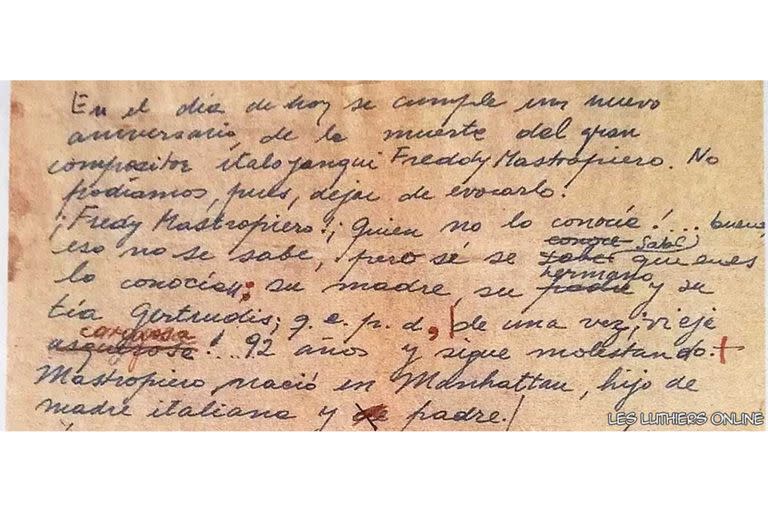 En el día de hoy se cumple un nuevo
aniversario de la muerte del gran
compositor ítaloyanqui Freddy Mastropiero. No
podíamos, pues, dejar de evocarlo.
¡Fredy Mastropiero! ¡quien no lo conocía!... bueno,
conoce sabe
eso no se sabe, pero sé se sabe quienes
hermano
lo conocían: su madre, su padre y su
tía Gertrudis; q.e.p.d, de una vez, ¡vieja
cargosa
asquerosa!... 92 años y sigue molestando.
Mastropiero nació en Manhattan, hijo de
madre italiana y de padre.
LES LUTHIERS ONLINE